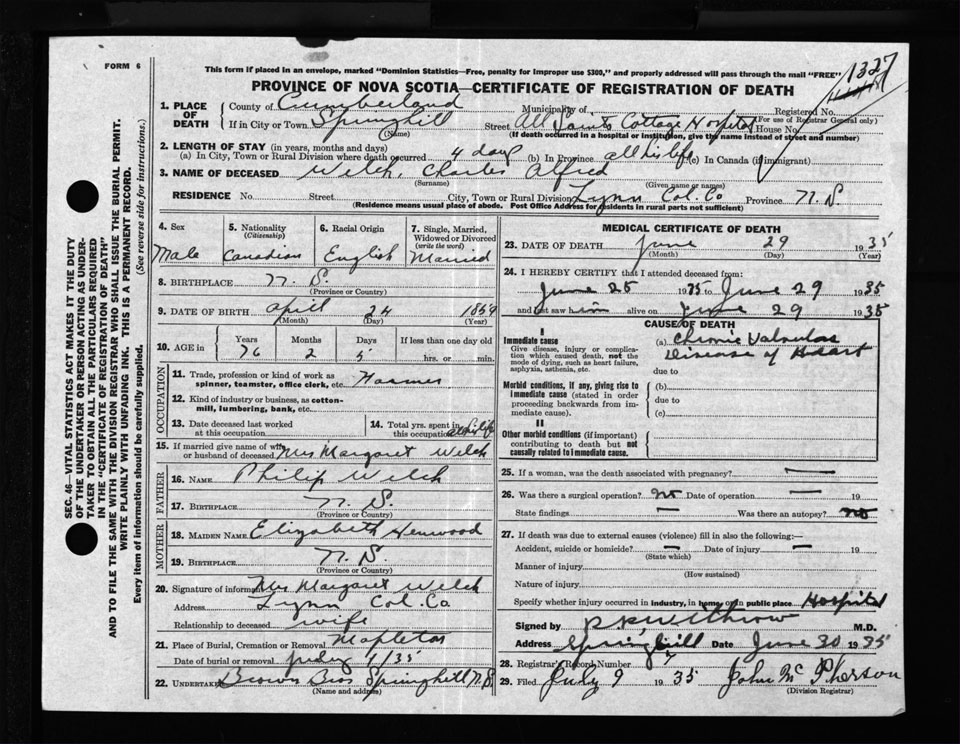 FORM 6
This form if placed in an envelope, marked "Dominion Statistics—Free, penalty for improper use $300," and properly addressed will pass through the mail "FREE"
1327
PROVINCE OF NOVA SCOTIA—CERTIFICATE OF REGISTRATION OF DEATH
1. PLACE OF DEATH
County of Cumberland Municipality of Registered No.
(For use of Registrar General only)
If in City or Town Springhill Street All Saints Cottage Hospital House No.
(Name) (If death occurred in a hospital or institution, give the name instead of street and number)
2. LENGTH OF STAY (in years, months and days)
(a) In City, Town or Rural Division where death occurred 4 days (b) In Province all his life (c) In Canada (if immigrant)
3. NAME OF DECEASED Welch, Charles Alfred
(Surname) (Given name or names)
RESIDENCE No. Street City, Town or Rural Division Lynn Col. Co Province N. S.
(Residence means usual place of abode. Post Office Address for residents in rural parts not sufficient)
4. Sex
Male
5. Nationality
(Citizenship)
Canadian
6. Racial Origin
English
7. Single, Married, Widowed or Divorced
(write the word)
Married
8. BIRTHPLACE N. S.
(Province or Country)
9. DATE OF BIRTH April 24 1859
(Month) (Day) (Year)
10. AGE in Years Months Days If less than one day old
76 2 5 hrs. or min.
OCCUPATION
11. Trade, profession or kind of work as
spinner, teamster, office clerk, etc. Farmer
12. Kind of industry or business, as cotton-
mill, lumbering, bank, etc.
13. Date deceased last worked
at this occupation
14. Total yrs. spent in
this occupation all his life
15. If married give name of wife
or husband of deceased Mrs Margaret Welch
FATHER
16. NAME Philip Welch
17. BIRTHPLACE N. S
(Province or Country)
MOTHER
18. MAIDEN NAME Elizabeth Henwood
19. BIRTHPLACE N. S
(Province or Country)
20. Signature of informant Mrs Margaret Welch
Address Lynn Col. Co
Relationship to deceased wife
21. Place of Burial, Cremation or Removal Mapleton
Date of burial or removal July 1/35
22. UNDERTAKER Brown Bros Springhill N. S.
(Name and address)
MEDICAL CERTIFICATE OF DEATH
23. DATE OF DEATH June 29 1935
(Month) (Day) (Year)
24. I HEREBY CERTIFY that I attended deceased from:
June 25 1935 to June 29 1935
and last saw him alive on June 29 1935
CAUSE OF DEATH
I
Immediate cause
Give disease, injury or complica-
tion which caused death, not the
mode of dying, such as heart failure,
asphyxia, asthenia, etc.
(a) Chronic Valvular
Disease of Heart
due to
Morbid conditions, if any, giving rise to
immediate cause (stated in order
proceeding backwards from im-
mediate cause).
(b)
due to
(c)
II
Other morbid conditions (if important)
contributing to death but not
causally related to immediate cause.
25. If a woman, was the death associated with pregnancy? —
26. Was there a surgical operation? No Date of operation — 19
State findings — Was there an autopsy? No
27. If death was due to external causes (violence) fill in also the following:—
Accident, suicide or homicide? — Date of injury — 19
(State which)
Manner of injury
(How sustained)
Nature of injury
Specify whether injury occurred in industry, in home, or in public place Hospital
Signed by Withrow M.D.
Address Springhill Date June 30 1935
28. Registrar's Record Number
29. Filed July 9 1935 John McPherson
(Division Registrar)
SEC. 46—VITAL STATISTICS ACT MAKES IT THE DUTY
OF THE UNDERTAKER OR PERSON ACTING AS UNDER-
TAKER TO OBTAIN ALL THE PARTICULARS REQUIRED
IN THE "CERTIFICATE OF REGISTRATION OF DEATH"
AND TO FILE THE SAME WITH THE DIVISION REGISTRAR WHO SHALL ISSUE THE BURIAL PERMIT.
WRITE PLAINLY WITH UNFADING INK. THIS IS A PERMANENT RECORD.
Every item of information should be carefully supplied. (See reverse side for instructions.)